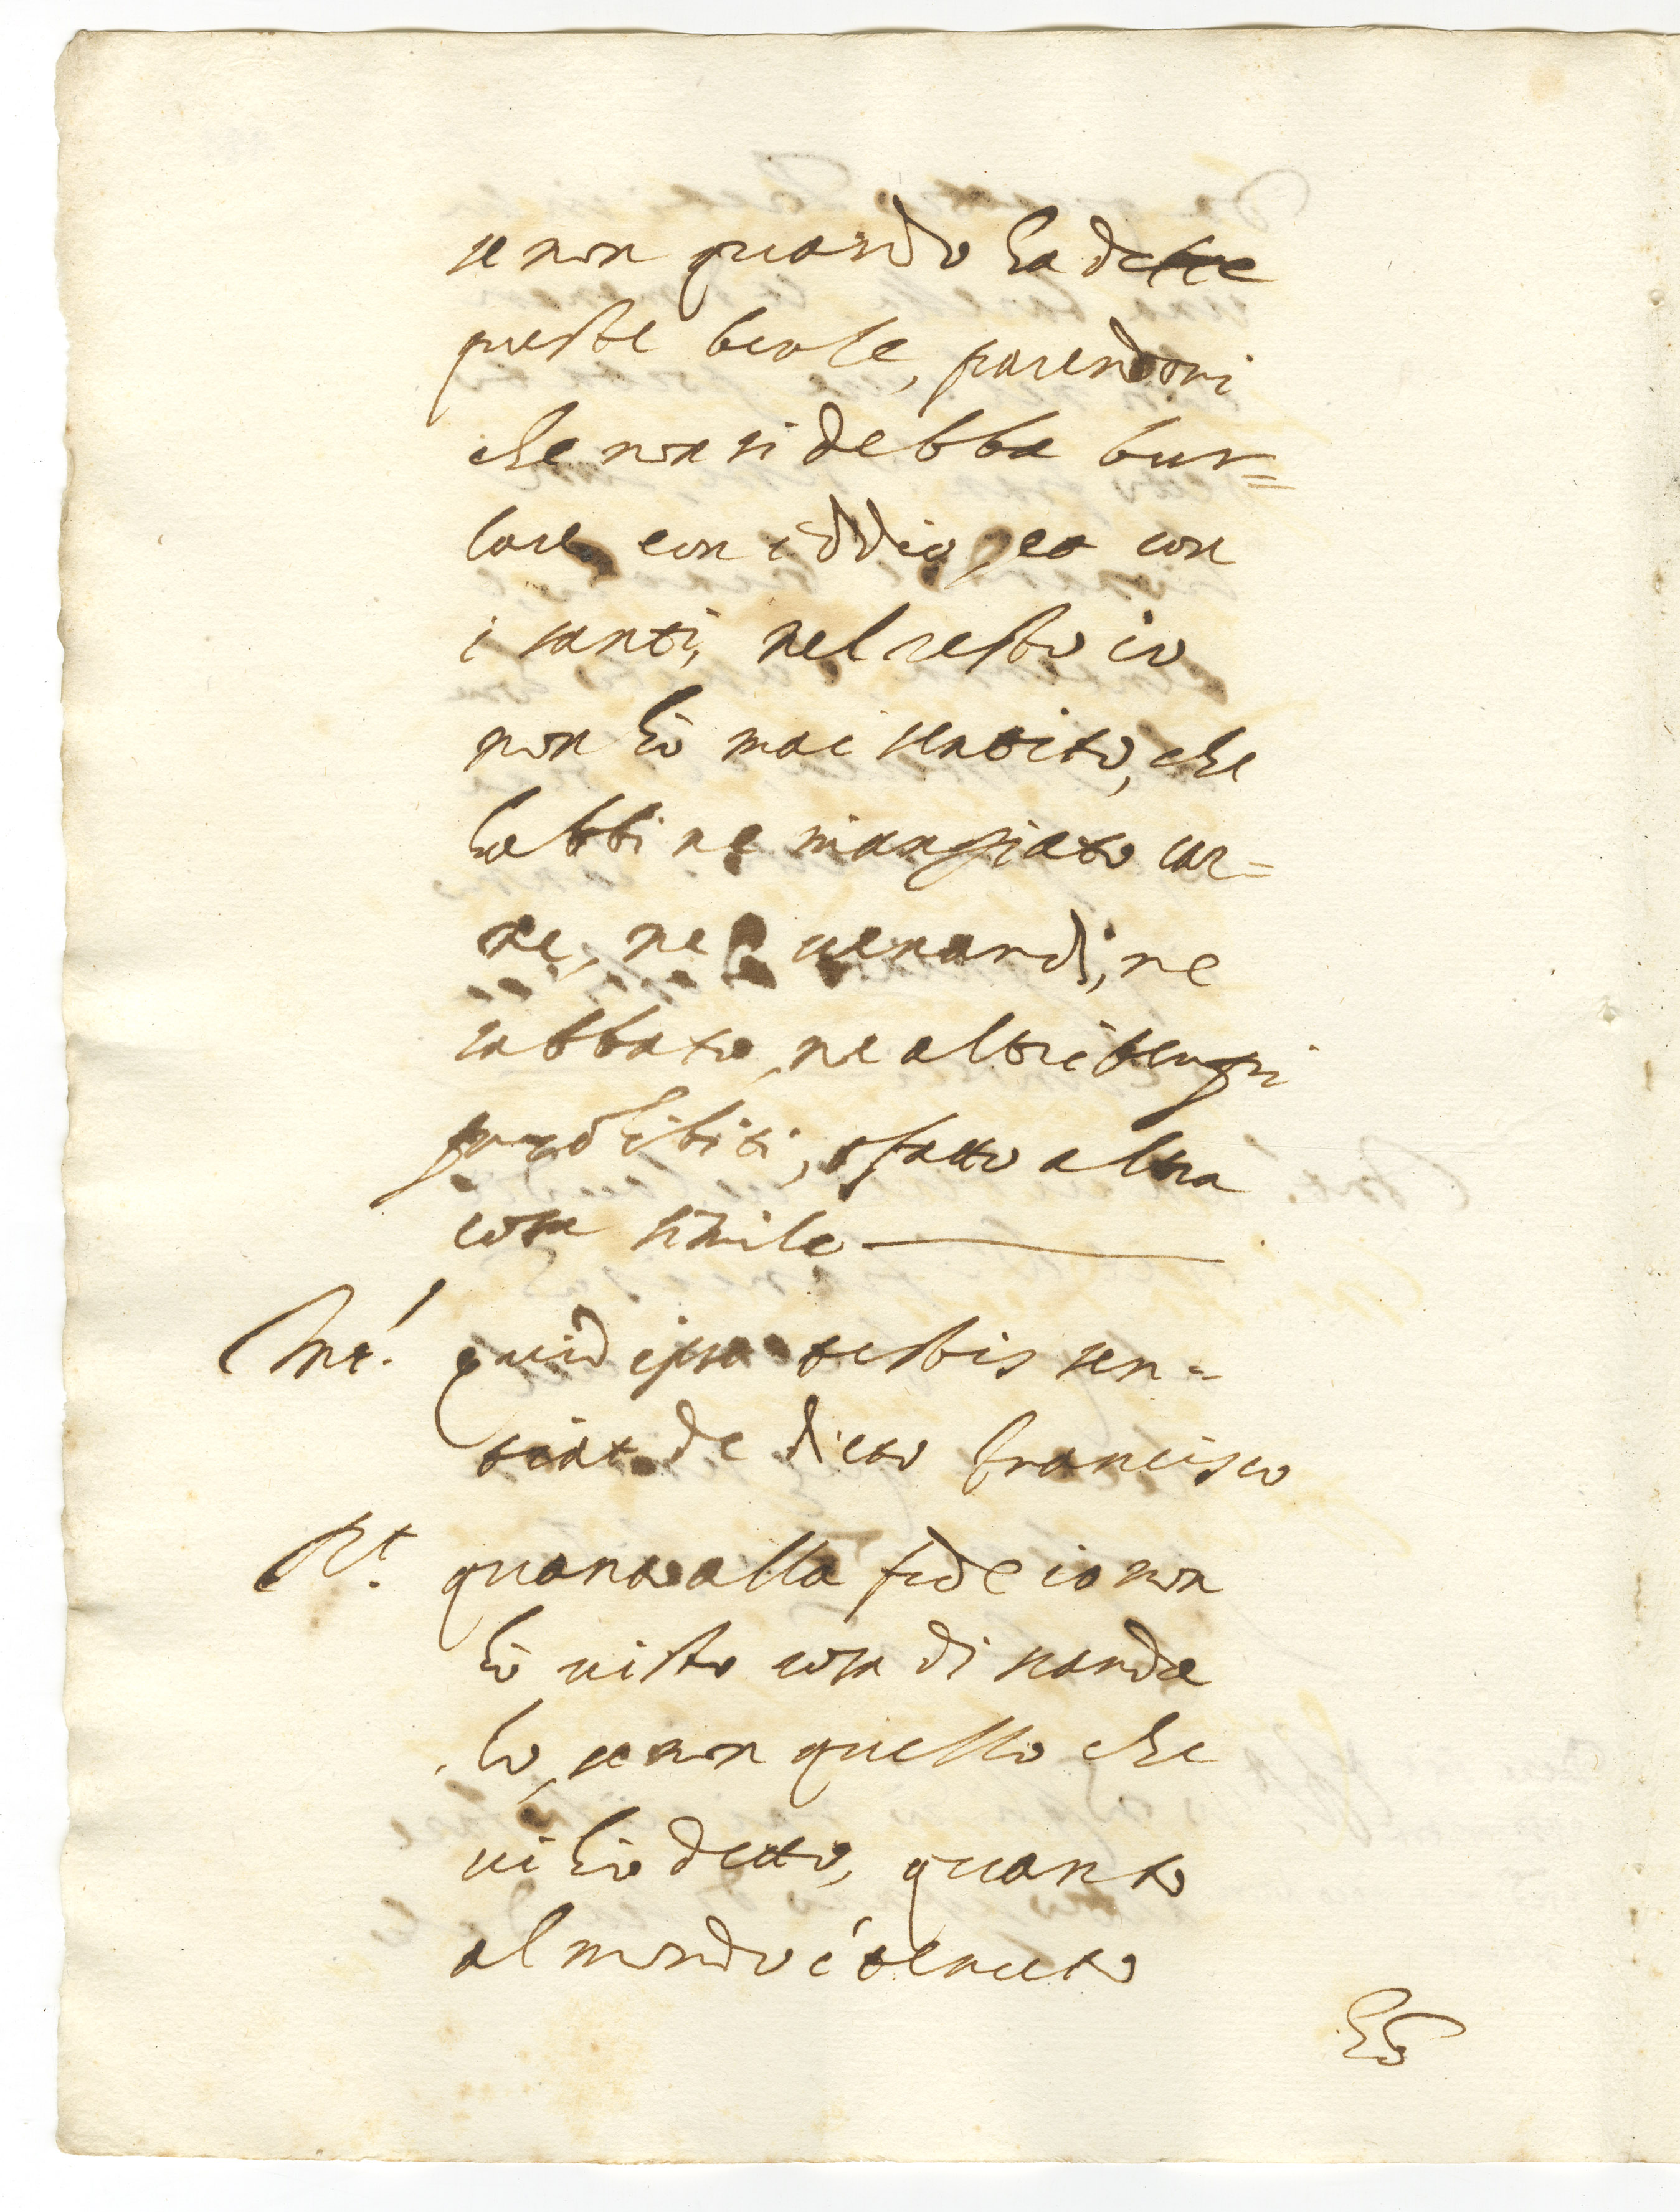 se non quando ha dette
queste burle, parendomi
che non si debba bur=
lare con iddio, et con
i santi, nel resto io
non hò mai sentito, che
habbi ne mangiato car=
ne, ne uenardi, ne
sabbato, ne altri tempi
prohibiti, o fatto altra
cosa simile
Int.! quid ipse testis sen=
tiat de dicto francisco
R.t quanto alla fede io non
hò uisto cosa di scanda
lo, se non quello che
ui hò detto, quanto
al mondo é tenuto